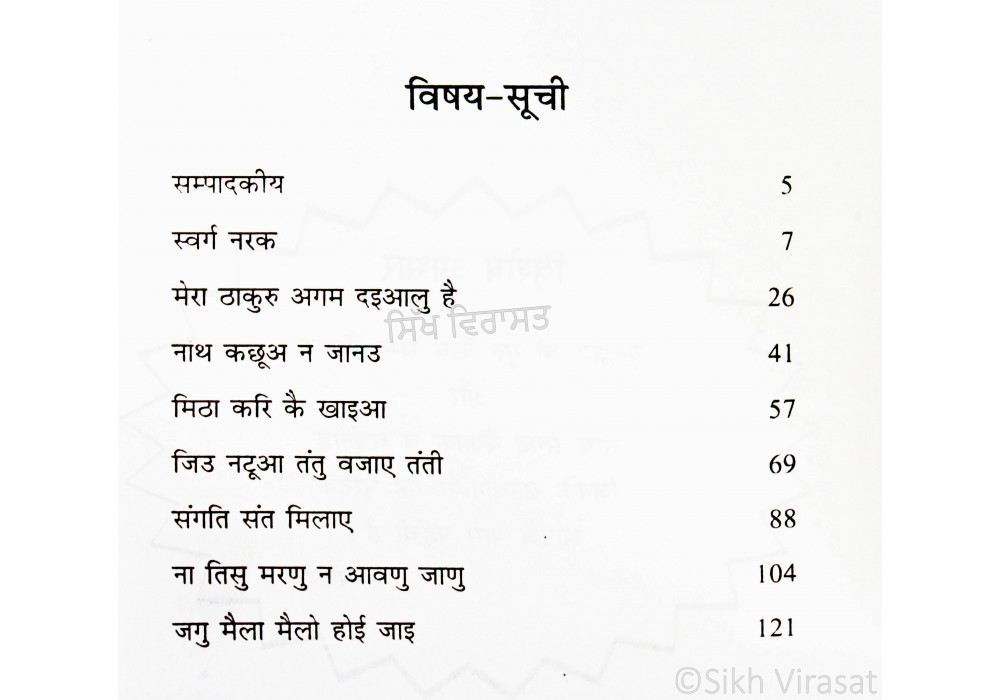 विषय-सूची
सम्पादकीय 5
स्वर्ग नरक 7
मेरा ठाकुरु अगम दइआलु है 26
ਸਿੱਖ ਵਿਰਾਸਤ
नाथ कछूअ न जानउ 41
मिठा करि कै खाइआ 57
जिउ नटूआ तंतु वजाए तंती 69
संगति संत मिलाए 88
ना तिसु मरणु न आवणु जाणु 104
जगु मैला मैलो होई जाइ 121
©Sikh Virasat